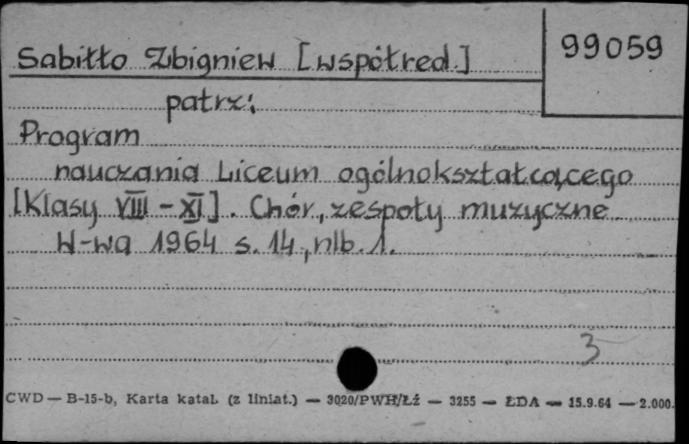 Sabiłło Zbigniew [współred.]
99059
patrz:
Program
nauczania Liceum ogólnokształcącego
[Klasy VIII - XI]. Chór, zespoły muzyczne
W-wa 1964 s. 14, nlb. 1.
3
CWD — B-15-b, Karta katal. (z liniat.) — 3020/PWH/Łź — 3255 — ŁDA — 15.9.64 — 2.000.